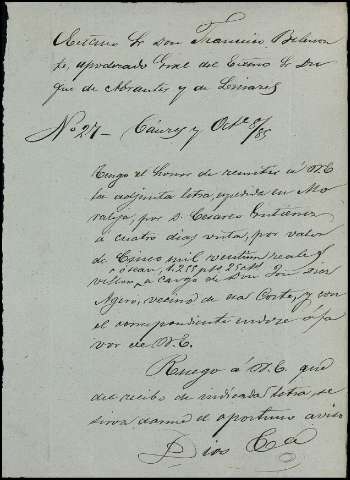 Excmo Sr Don Francisco Belmon
te, apoderado Gral del Excmo Sr Du
que de Abrantes y de Linares
Nº 27 — Cáceres y Octe 8/85
Tengo el honor de remitir á V.E.
la adjunta letra, expedida en
por D. Cesareo Gutierrez
a cuatro dias vista, por valor
de Cinco mil veintiun reales
o ó sean, 1.255 pts 25 cts
vellon, a cargo de Don José
Agero, vecino de esa Corte, y con
el correspondiente endoso á fa
vor de V.E.
Ruego á V.E. que
del recibo de indicada letra, se
sirva darme el oportuno aviso
Dios &a